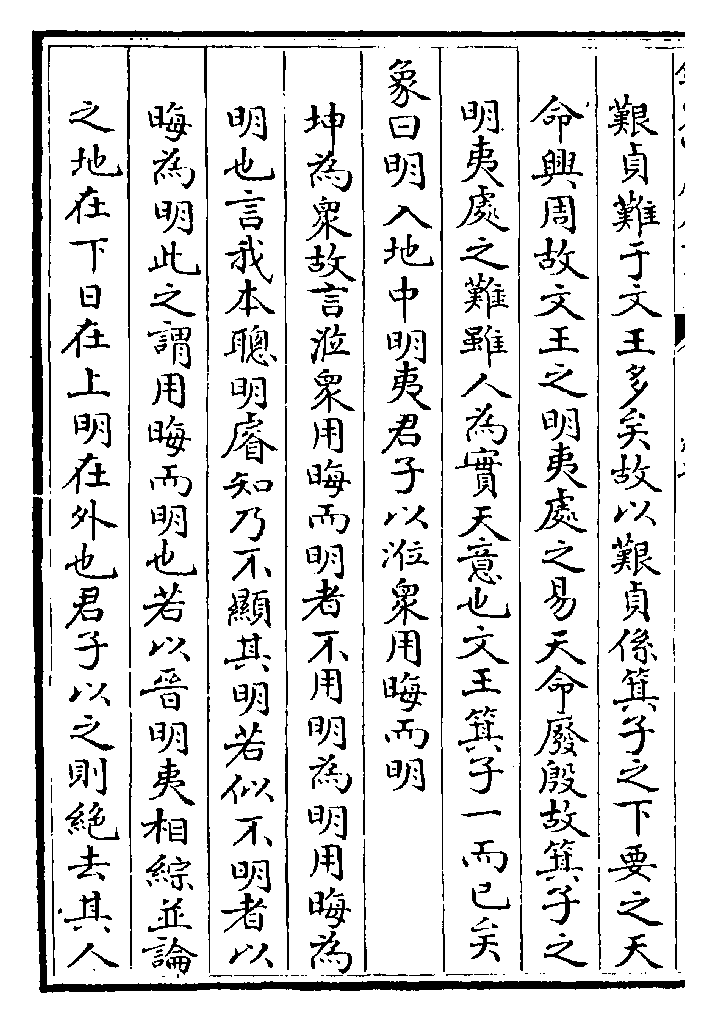 艱貞難于文王多矣故以艱貞係箕子之下要之天
命興周故文王之明夷處之易天命廢殷故箕子之
明夷處之難雖人為實天意也文王箕子一而已矣
象曰明入地中明夷君子以涖衆用晦而明
坤為衆故言涖衆用晦而明者不用明為明用晦為
明也言我本聰明睿知乃不顯其明若似不明者以
晦為明此之謂用晦而明也若以晉明夷相綜並論
之地在下日在上明在外也君子以之則絶去其人